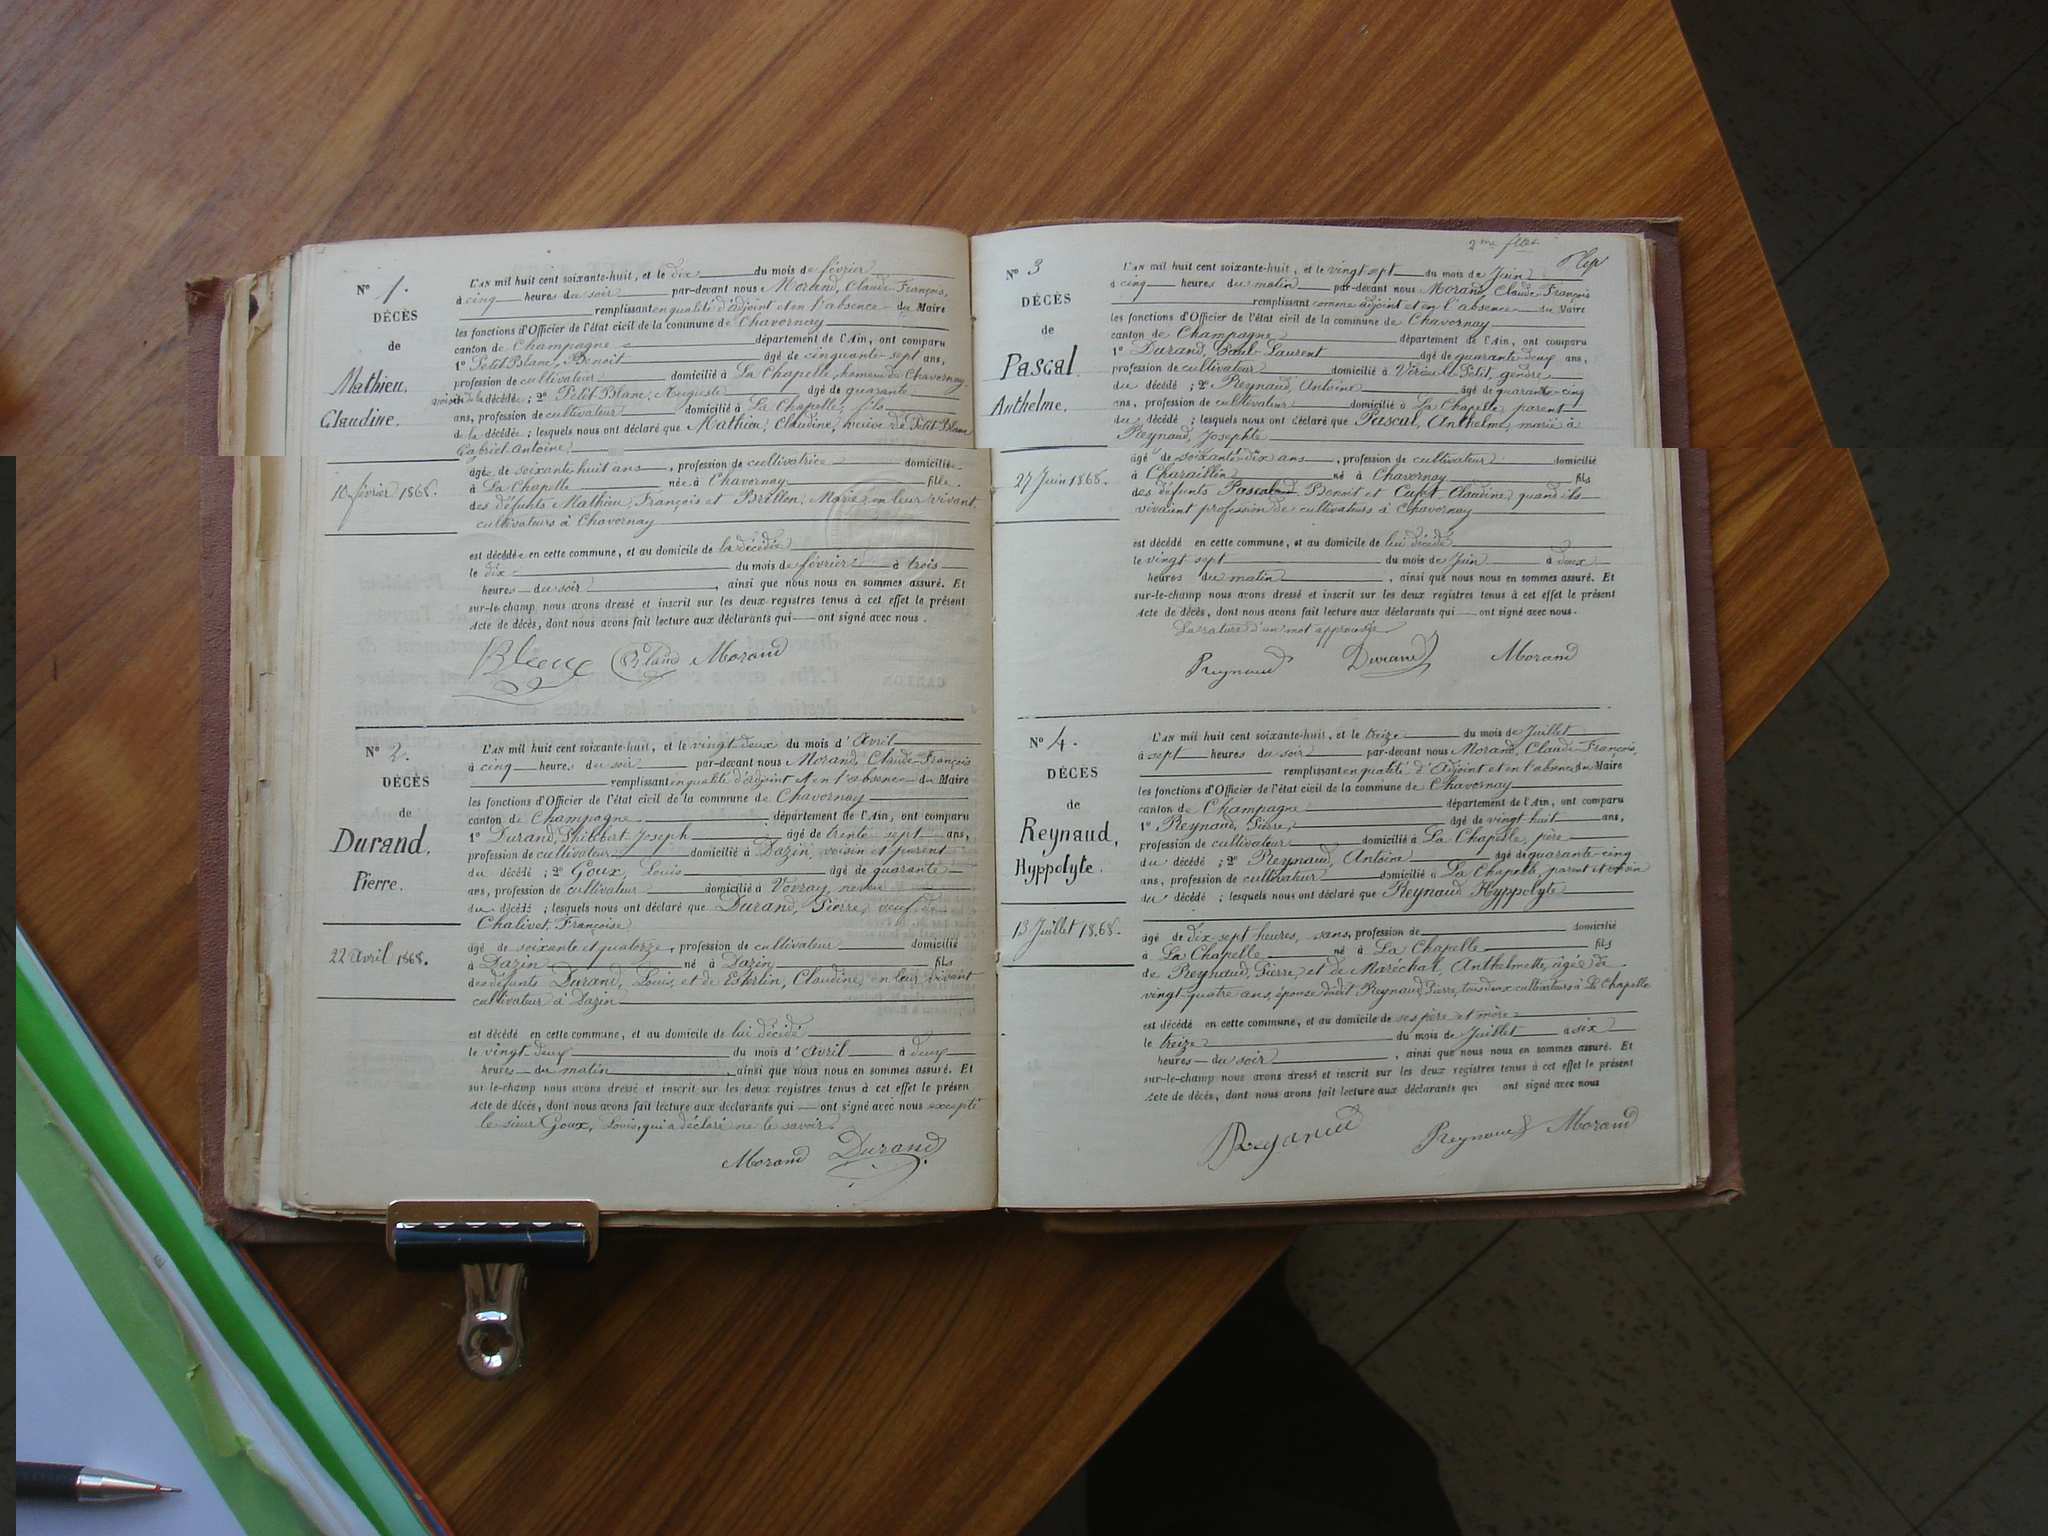 N° 1.
DÉCÈS
de
Mathieu,
Claudine.
10 février 1868.
L'AN mil huit cent soixante-huit, et le dix du mois de février
à cinq heures du soir par-devant nous Morand, Claude François,
remplissant en qualité d'adjoint et en l'absence du Maire
les fonctions d'Officier de l'état civil de la commune de Chavornay
canton de Champagne département de l'Ain, ont comparu
1° Petit Blanc, Benoit âgé de cinquante-sept ans,
profession de cultivateur domicilié à La Chapelle, hameau de Chavornay,
de la décédée ; 2° Petit Blanc, Auguste âgé de quarante
ans, profession de cultivateur domicilié à La Chapelle, fils
de la décédée ; lesquels nous ont déclaré que Mathieu, Claudine, veuve de Petit Blanc
Gabriel Antoine,
âgée de soixante huit ans, profession de cultivatrice domiciliée
à La Chapelle née à Chavornay fille
des défunts Mathieu, François et Brillon, Marie, en leur vivant
cultivateurs à Chavornay
est décédée en cette commune, et au domicile de la décédée
le dix du mois de février à trois
heures du soir, ainsi que nous nous en sommes assuré. Et
sur-le-champ nous avons dressé et inscrit sur les deux registres tenus à cet effet le présent
Acte de décès, dont nous avons fait lecture aux déclarants qui ont signé avec nous.
Blanc Morand
N° 2.
DÉCÈS
de
Durand,
Pierre.
22 avril 1868.
L'AN mil huit cent soixante-huit, et le vingt deux du mois d'Avril
à cinq heures du soir par-devant nous Morand, Claude François
remplissant en qualité d'adjoint et en l'absence du Maire
les fonctions d'Officier de l'état civil de la commune de Chavornay
canton de Champagne département de l'Ain, ont comparu
1° Durand, Philibert Joseph âgé de trente sept ans,
profession de cultivateur domicilié à Dazin, voisin et parent
du décédé ; 2° Goux, Louis âgé de quarante
ans, profession de cultivateur domicilié à Vovray, neveu
du décédé ; lesquels nous ont déclaré que Durand, Pierre, veuf de
Chalivet, Françoise
âgé de soixante et quatorze, profession de cultivateur domicilié
à Dazin né à Dazin fils
des défunts Durand, Louis et de Esterlin, Claudine, en leur vivant
cultivateur à Dazin
est décédé en cette commune, et au domicile de lui décédé
le vingt deux du mois d'Avril à deux
heures du matin ainsi que nous nous en sommes assuré. Et
sur-le-champ nous avons dressé et inscrit sur les deux registres tenus à cet effet le présen
Acte de décès, dont nous avons fait lecture aux déclarants qui ont signé avec nous excepté
le sieur Goux, Louis, qui a déclaré ne le savoir.
Morand Durand
2me
N° 3
DÉCÈS
de
Pascal
Anthelme.
27 Juin 1868.
L'AN mil huit cent soixante-huit, et le vingt sept du mois de Juin
à cinq heures du matin par-devant nous Morand, Claude François
remplissant comme adjoint et en l'absence du Maire
les fonctions d'Officier de l'état civil de la commune de Chavornay
canton de Champagne département de l'Ain, ont comparu
1° Durand, Paul Laurent âgé de quarante deux ans,
profession de cultivateur domicilié à Virieu le Petit, gendre
du décédé ; 2° Reynaud, Antoine âgé de quarante cinq
ans, profession de cultivateur domicilié à La Chapelle, parent
du décédé ; lesquels nous ont déclaré que Pascal, Anthelme, marié à
Reynaud, Josephte
âgé de soixante dix ans, profession de cultivateur domicilié
à Charaillin né à Chavornay fils
des défunts Pascal Benoit et Cufet Claudine, quand ils
vivaient profession de cultivateurs à Chavornay
est décédé en cette commune, et au domicile de lui décédé
le vingt sept du mois de Juin à deux
heures du matin, ainsi que nous nous en sommes assuré. Et
sur-le-champ nous avons dressé et inscrit sur les deux registres tenus à cet effet le présent
Acte de décès, dont nous avons fait lecture aux déclarants qui ont signé avec nous.
La rature d'un mot approuvée
Reynaud Durand Morand
N° 4.
DÉCÈS
de
Reynaud,
Hyppolyte.
13 Juillet 1868.
L'AN mil huit cent soixante-huit, et le treize du mois de Juillet
à sept heures du soir par-devant nous Morand, Claude François,
remplissant en qualité d'Adjoint et en l'absence du Maire
les fonctions d'Officier de l'état civil de la commune de Chavornay
canton de Champagne département de l'Ain, ont comparu
1° Reynaud, Pierre, âgé de vingt huit ans,
profession de cultivateur domicilié à La Chapelle, père
du décédé ; 2° Reynaud, Antoine âgé de quarante cinq
ans, profession de cultivateur domicilié à La Chapelle, parent et voisin
du décédé ; lesquels nous ont déclaré que Reynaud Hyppolyte
âgé de dix sept heures, sans, profession de domicilié
à La Chapelle né à La Chapelle fils
de Reynaud, Pierre, et de Maréchal, Anthelmette, âgée de
vingt quatre ans, épouse dudit Reynaud Pierre, tous deux cultivateurs à La Chapelle
est décédé en cette commune, et au domicile de ses père et mère
le treize du mois de Juillet à six
heures du soir, ainsi que nous nous en sommes assuré. Et
sur-le-champ nous avons dressé et inscrit sur les deux registres tenus à cet effet le présent
Acte de décès, dont nous avons fait lecture aux déclarants qui ont signé avec nous
Reynaud Reynaud Morand